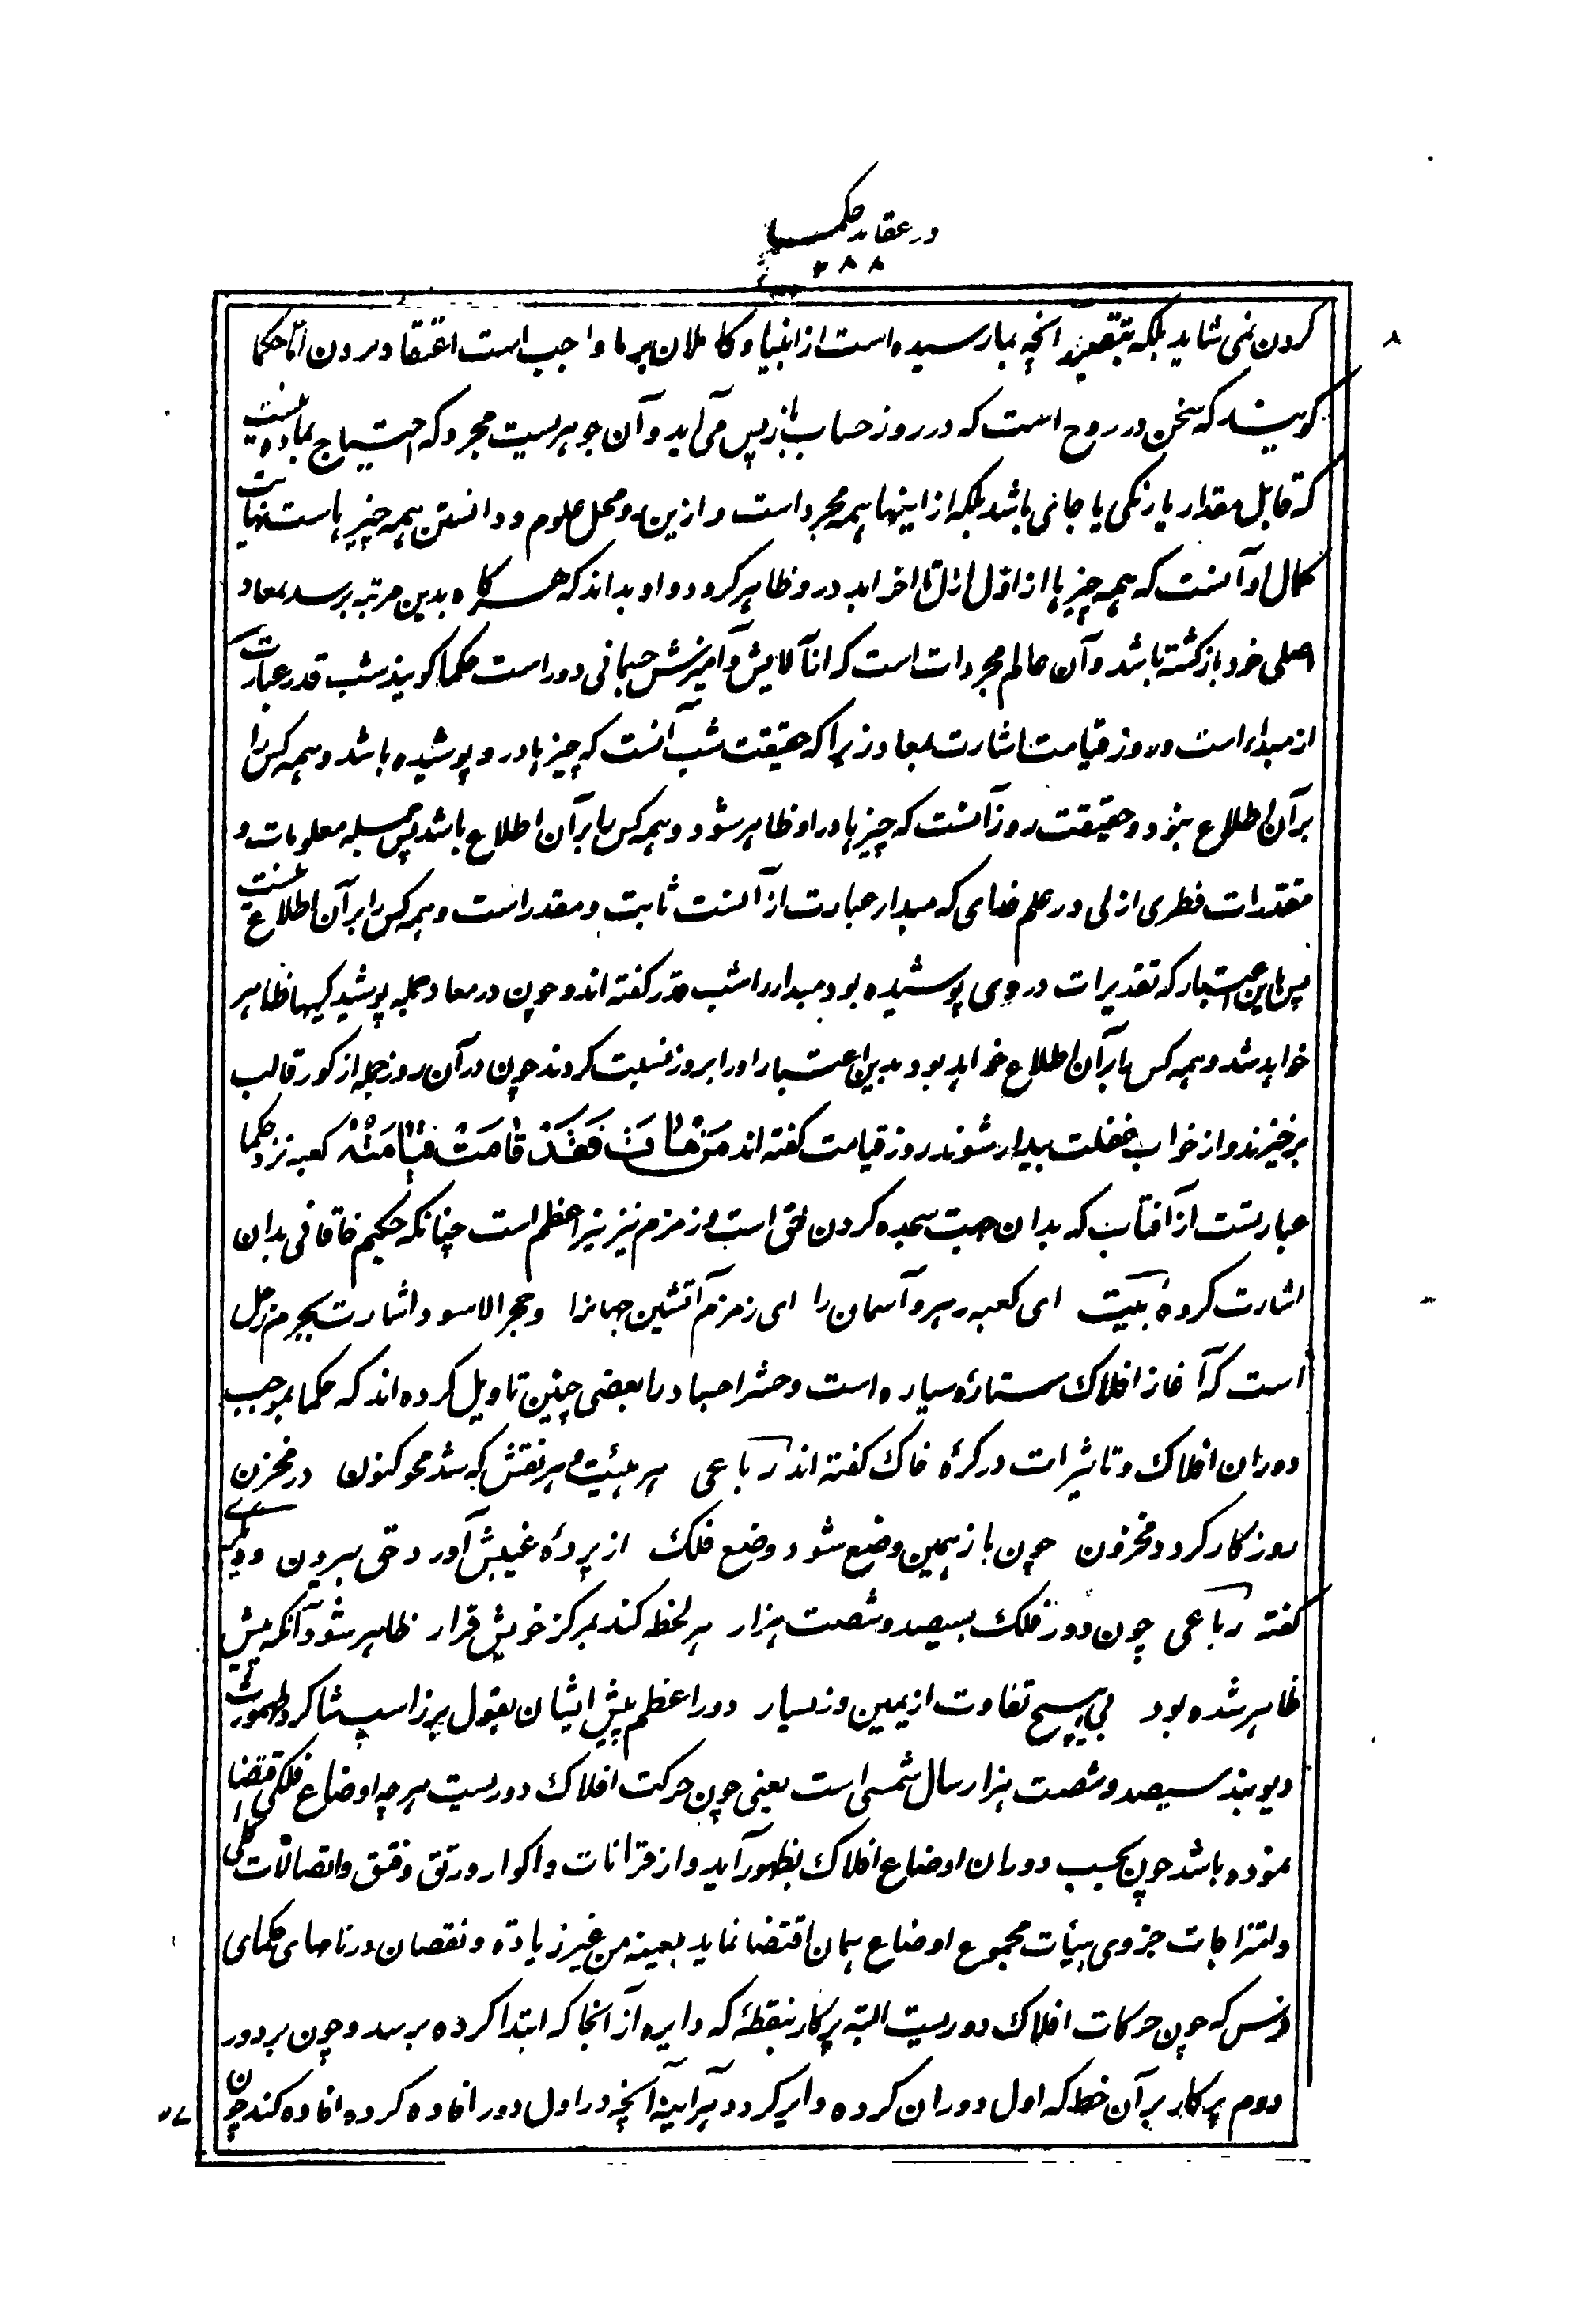 در عقاید حکما
۲۸۸
کردن نمی شاید بلکه آنچه بما رسیده است از انبیا و کاملان بر ما واجب است اعتقاد کردن اما حکما
گویند که سخن در روح است که در روز حساب باز پس می آید و آن جوهریست مجرد که احتیاج بماده نیست
که قابل مقدار یا رنگی یا جائی باشد بلکه از اینها همه مجرد است و ازین رو محل علوم و دانستن همه چیز هاست نهایت
کمال او آنست که همه چیز ها از اول ازل تا آخر ابد درو ظاهر گردد و او بداند که هرگاه بدین مرتبه برسد بمعاد
اصلی خود بازگشته باشد و آن عالم مجردات است که از آلایش و آمیزش جسمانی دور است حکما گویند شب قدر عبارت
از مبداء است و روز قیامت اشارت بمعاد زیرا که حقیقت شب آنست که چیزها درو پوشیده باشد و همه کس را
بر آن اطلاع نبود و حقیقت روز آنست که چیزها در او ظاهر شود و همه کس را بر آن اطلاع باشد پس جمله معلومات و
مقدرات فطری ازلی در علم خدای که مبدا عبارت از آنست ثابت و مقدر است و همه کس را بر آن اطلاع نیست
پس باین اعتبار که تقدیرات در وی پوشیده بود مبدا را شب قدر گفته اند و چون در معاد جمله پوشیدگیها ظاهر
خواهد شد و همه کس را بر آن اطلاع خواهد بود بدین اعتبار او را بروز نسبت کردند چون در آن روز جمله از گور قالب
برخیزند و از خواب غفلت بیدار شوند روز قیامت گفته اند مَنْ مَاتَ فَقَدْ قَامَتْ قِیَامَتُهُ کعبه نزد حکما
عبارتست از آفتاب که بدان جهت سجده کردن لایق است و زمزم نیز نیر اعظم است چنانکه حکیم خاقانی بدان
اشارت کرده بیت ای کعبه رهرو آسمان را ای زمزم آتشین جهانرا و حجر الاسود اشارت بجرم زحل
است که آغاز افلاک ستارهٔ سیاره است و حشر اجساد را بعضی چنین تاویل کرده اند که حکما بموجب
دوران افلاک و تاثیرات در کرهٔ خاک گفته اند رباعی هر هیئت و هر نقش که شد محو کنون در مخزن
روزگار گردد مخزون چون باز همین وضع شود وضع فلک از پردهٔ غیبش آورد حق بیرون و دیگری
گفته رباعی چون دور فلک بسیصد و شصت هزار هر لحظه کند بمرکز خویش قرار ظاهر شود آنکه پیش
ظاهر شده بود بی هیچ تفاوت از یمین و ز یسار دور اعظم پیش ایشان بقول برزاسپ شاگرد طهمورث
دیوبند سیصد و شصت هزار سال شمسی است یعنی چون حرکت افلاک دوریست هرچه اوضاع فلکی اقتضا
نموده باشد چون بحسب دوران اوضاع افلاک بظهور آید و از قرانات و اکوار و رتق و فتق و اتصالات کلی
و امتزاجات جزوی هیئات مجموع اوضاع همان اقتضا نماید بعینه من غیر زیادة و نقصان در نامهای حکمای
فرس که چون حرکات افلاک دوریست البته پرکار بنقطهٔ که دایره از آنجا که ابتدا کرده برسد و چون بر دور
دوم پرکار بر آن خط که اول دوران کرده دایر گردد هر آینه آنچه در اول دور افاده کرده افاده کند چون